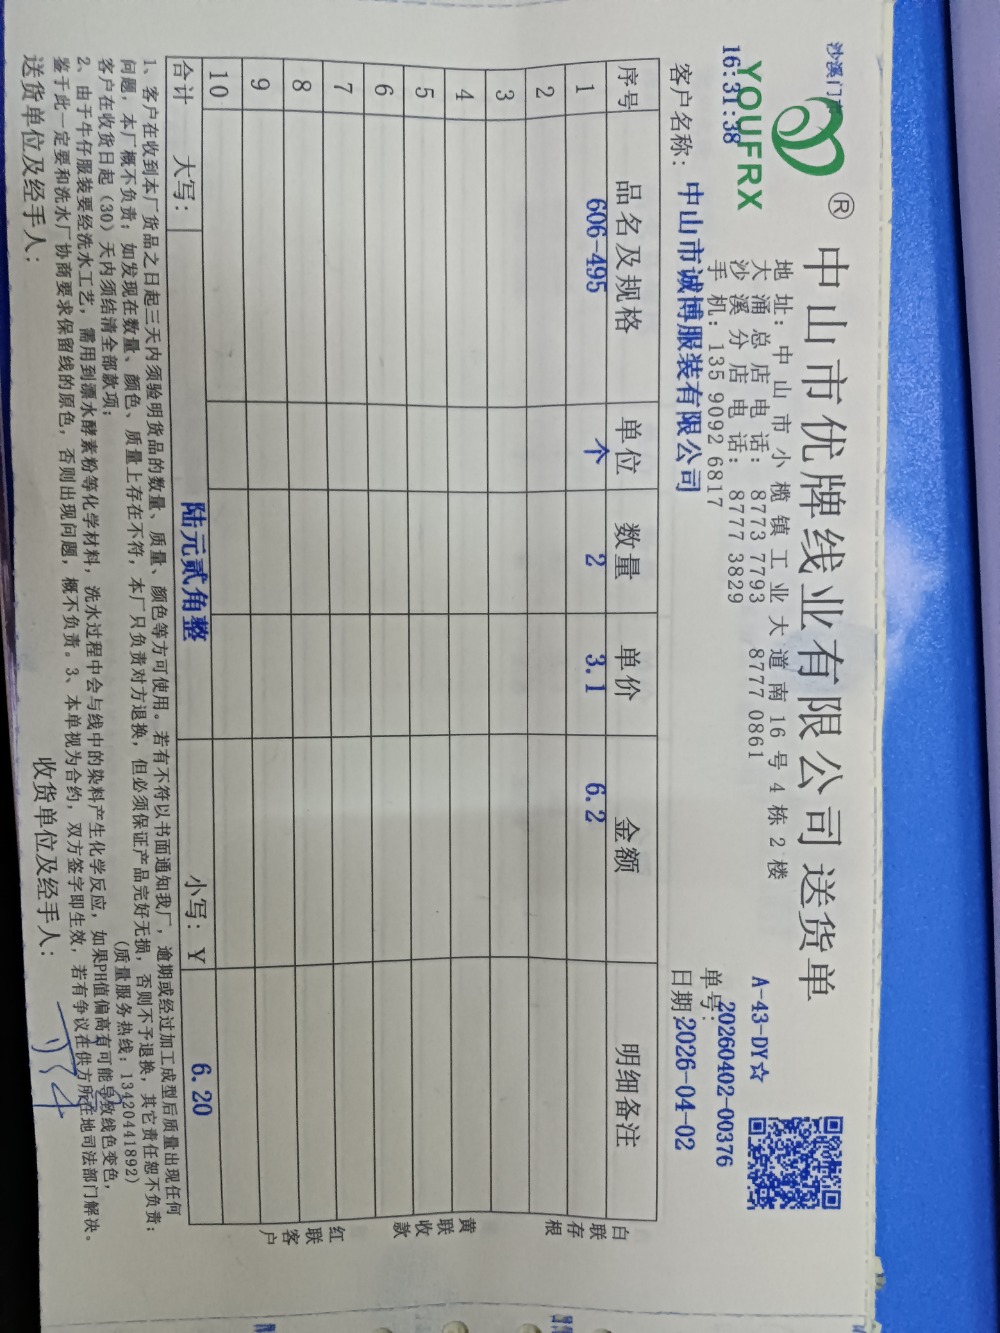 沙溪门
16:31:38
YOUFRX
®
中山市优牌线业有限公司 送货单
地址：中山市小榄镇工业大道南16号4栋2楼
大涌总店电话：8773 7793 8777 0861
沙溪分店电话：8777 3829
手机：135 9092 6817
A-43-DY☆
单号：20260402-00376
客户名称：中山市诚博服装有限公司
日期：2026-04-02
序号 品名及规格 单位 数量 单价 金额 明细备注
1 606-495 个 2 3.1 6.2
2
3
4
5
6
7
8
9
10
合计 大写： 陆元贰角整 小写：¥ 6.20
白联存根
黄联收款
红联客户
1、客户在收到本厂货品之日起三天内须验明货品的数量、质量、颜色等方可使用。若有不符以书面通知我厂，逾期或经过加工成型后质量出现任何
问题，本厂概不负责；如发现在数量、颜色、质量上存在不符，本厂只负责对方退换，但必须保证产品完好无损，否则不予退换，其它责任恕不负责；
客户在收货日起（30）天内须结清全部款项； （质量服务热线：13420441892）
2、由于牛仔服装要经洗水工艺，需用到漂水酵素粉等化学材料，洗水过程中会与线中的染料产生化学反应，如果PH值偏高有可能导致线色变色，
鉴于此一定要和洗水厂协商要求保留线的原色，否则出现问题，概不负责。3、本单视为合约，双方签字即生效，若有争议在供方所在地司法部门解决。
送货单位及经手人： 收货单位及经手人：